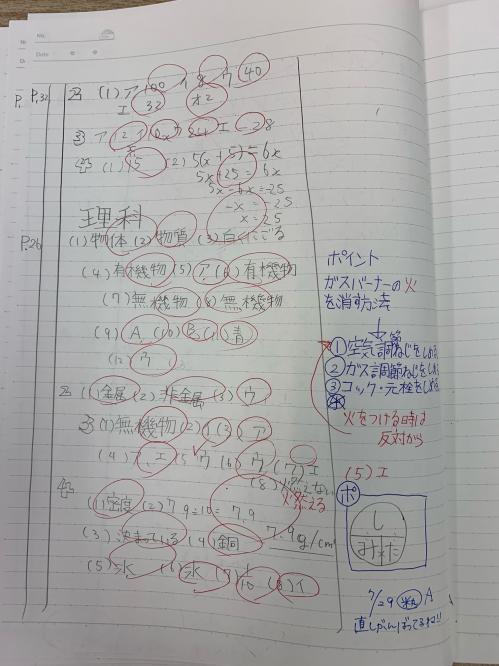 No.
Date
P.32
2 (1) ア 100 イ 8 ウ 40
エ 32 オ 2
3 ア
エ -28
4 (1) 5 (2) 5(x+5)=6x
5x+25=6x
5x-6x=-25
-x=-25
x=25
理科
P.26
(1)物体 (2)物質 (3)白くにごる
(4)有機物 (5)ア (6)有機物
(7)無機物 (8)無機物
(9) A (10) B (11)青
(12)ウ
2 (1)金属 (2)非金属 (3)ウ
3 (1)無機物 (2)イ (3)ア
(4)ア、エ (5)ウ (6)ウ (7)エ
(8)燃えない
火 燃える
4
(1)密度 (2) 79÷10=7.9
7.9g/cm³
(3)決まっている (4)銅
(5)水 (6)氷 (7)1/10 (8)イ
ポイント
ガスバーナーの火
を消す方法
①空気調節ねじをしめる
②ガス調節ねじをしめる
③コック・元栓をしめる
火をつける時は
反対から
(5)エ
ポ
7/29 A
直しがんばってるね!!